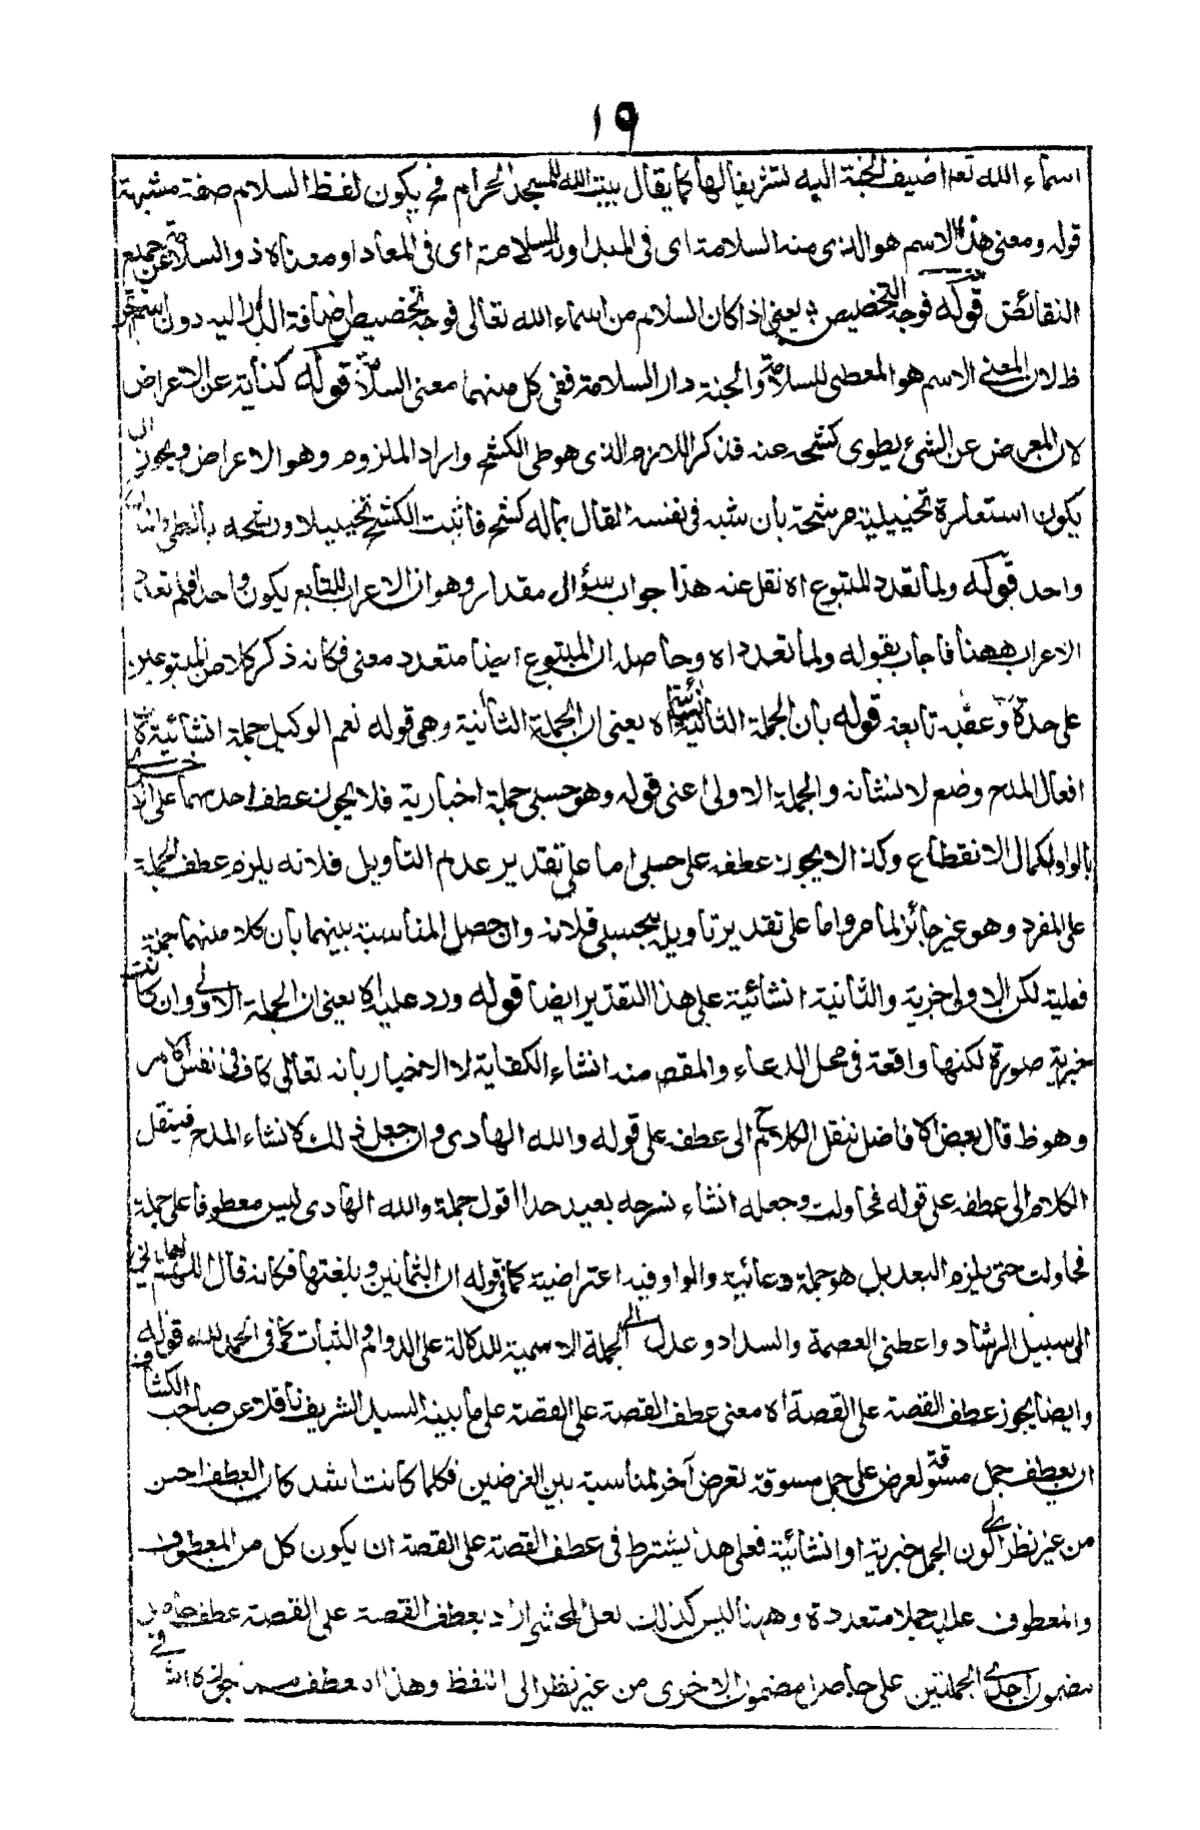 ١٩
اسماء الله تعم اضيف الجنة اليه تشريفا لها كما يقال بيت الله للمسجد الحرام فح يكون لفظ السلام صفة مشبهة
قوله ومعنى هذا الاسم هو الذى منه السلامة اى فى المبدا وبه السلامة اى فى المعاد او معناه ذو السلامة عن جميع
النقائص قوله فوجه التخصيص يعنى اذا كان السلام من اسماء الله تعالى فوجه تخصيص اضافة الدار اليه دون اسم آخر
ظ لان المعنى الاسم هو المعطى للسلامة والجنة دار السلامة ففى كل منهما معنى السلامة قوله كناية عن الاعراض
لان المعرض عن الشئ يطوى كشحه عنه فذكر اللازم الذى هو طى الكشح واراد الملزوم وهو الاعراض ويجوز ان
يكون استعارة تخييلية مرشحة بان شبه فى نفسه المقال بماله كشح فاثبت الكشح تخييلا ورشحه بالطى
واحد قوله ولما تعدد المتبوع اه نقل عنه هذا جواب سؤال مقدر وهو ان الاعراب للتابع يكون واحدا فلم تعدد
الاعراب ههنا فاجاب بقوله ولما تعدد اه وحاصله ان المتبوع ايضا متعدد معنى فكانه ذكر كلا من المتبوعين
على حدة وعقبه تابعه قوله بان الجملة الثانية انشائية اه يعنى ان الجملة الثانية وهى قوله نعم الوكيل جملة انشائية لان
افعال المدح وضع لانشائه والجملة الاولى اعنى قوله وهو حسبى جملة اخبارية فلا يجوز عطف احدهما على الاخرى
بالواو لكمال الانقطاع وكذا لا يجوز عطفه على حسبى اما على تقدير عدم التاويل فلانه يلزم عطف الجملة
على المفرد وهو غير جائز لما مر واما على تقدير تاويله بيحسبى فلانه وان حصل المناسبة بينهما بان كلا منهما جملة
فعلية لكن الاولى خبرية والثانية انشائية على هذا التقدير ايضا قوله ورد عليه اه يعنى ان الجملة الاولى وان كانت
خبرية صورة لكنها واقعة فى محل الدعاء والمقصد منه انشاء الكفاية لا الاخبار بانه تعالى كاف فى نفس الامر
وهو ظ قال بعض الافاضل ننقل الكلام ح الى عطفه على قوله والله الهادى وان جعل ذلك لانشاء المدح فينقل
الكلام الى عطفه على قوله فحاولت وجعله انشاء نسرحه بعيد جدا اقول جملة والله الهادى ليس معطوفا على جملة
فحاولت حتى يلزم البعد بل هو جملة دعائية والواو فيه اعتراضية كما فى قوله ان الثمانين وبلغتها فكانه قال اللهم
الى سبيل الرشاد واعطنى العصمة والسداد وعدل الى الجملة الاسمية للدلالة على الدوام والثبات كما فى الحمد لله قوله
وايضا يجوز عطف القصة على القصة اه معنى عطف القصة على القصة على ما بينه السيد الشريف ناقلا عن صاحب الكشاف
ان يعطف جمل مسوقة لغرض على جمل مسوقة لغرض آخر لمناسبة بين الغرضين فكلما كانت اشد كان العطف احسن
من غير نظر الى كون الجمل خبرية او انشائية فعلى هذا يشترط فى عطف القصة على القصة ان يكون كل من المعطوف
والمعطوف عليه جملا متعددة وههنا ليس كذلك لعل المحشى اراد بعطف القصة على القصة عطف حاصل
مضمون احدى الجملتين على حاصل مضمون الاخرى من غير نظر الى اللفظ وهذا